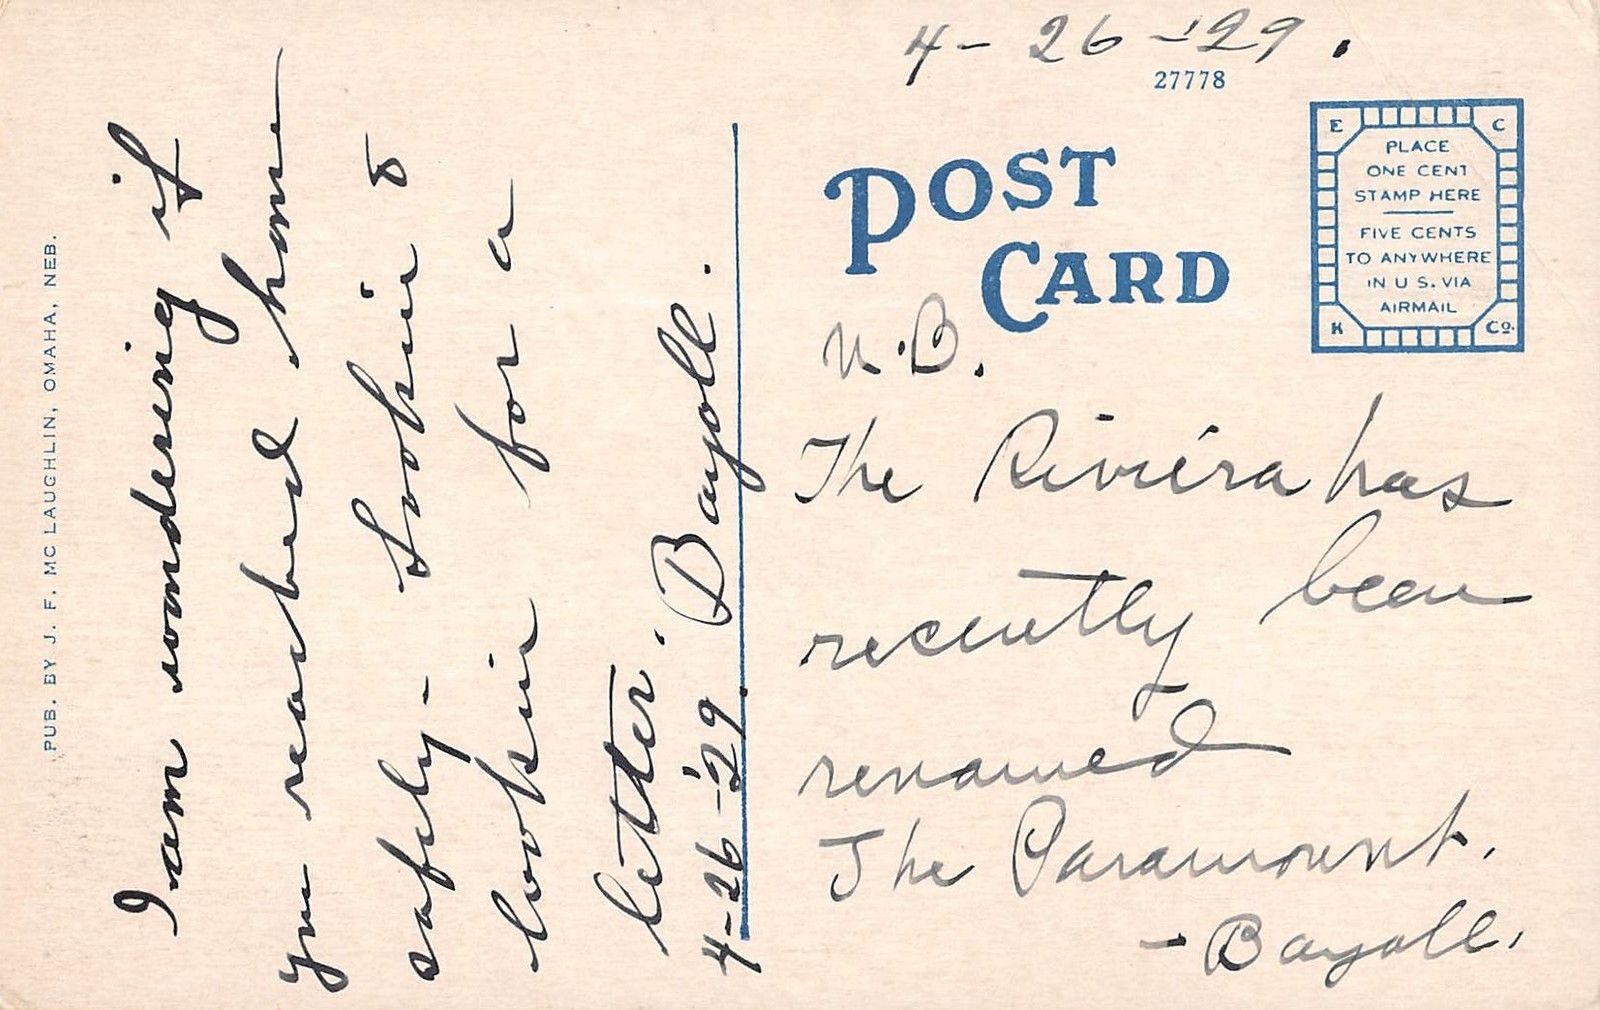 4-26-'29.
27778
POST
CARD
PLACE
ONE CENT
STAMP HERE
FIVE CENTS
TO ANYWHERE
IN U S. VIA
AIRMAIL
E
C
K
Co.
PUB. BY J. F. MC LAUGHLIN, OMAHA, NEB.
I am wondering if
you reached home
safely - Lookin &
lookin for a
letter. Bayoll.
4-26-'29.
N.B.
The Riviéra has
recently been
renamed
The Paramount.
- Bayoll.